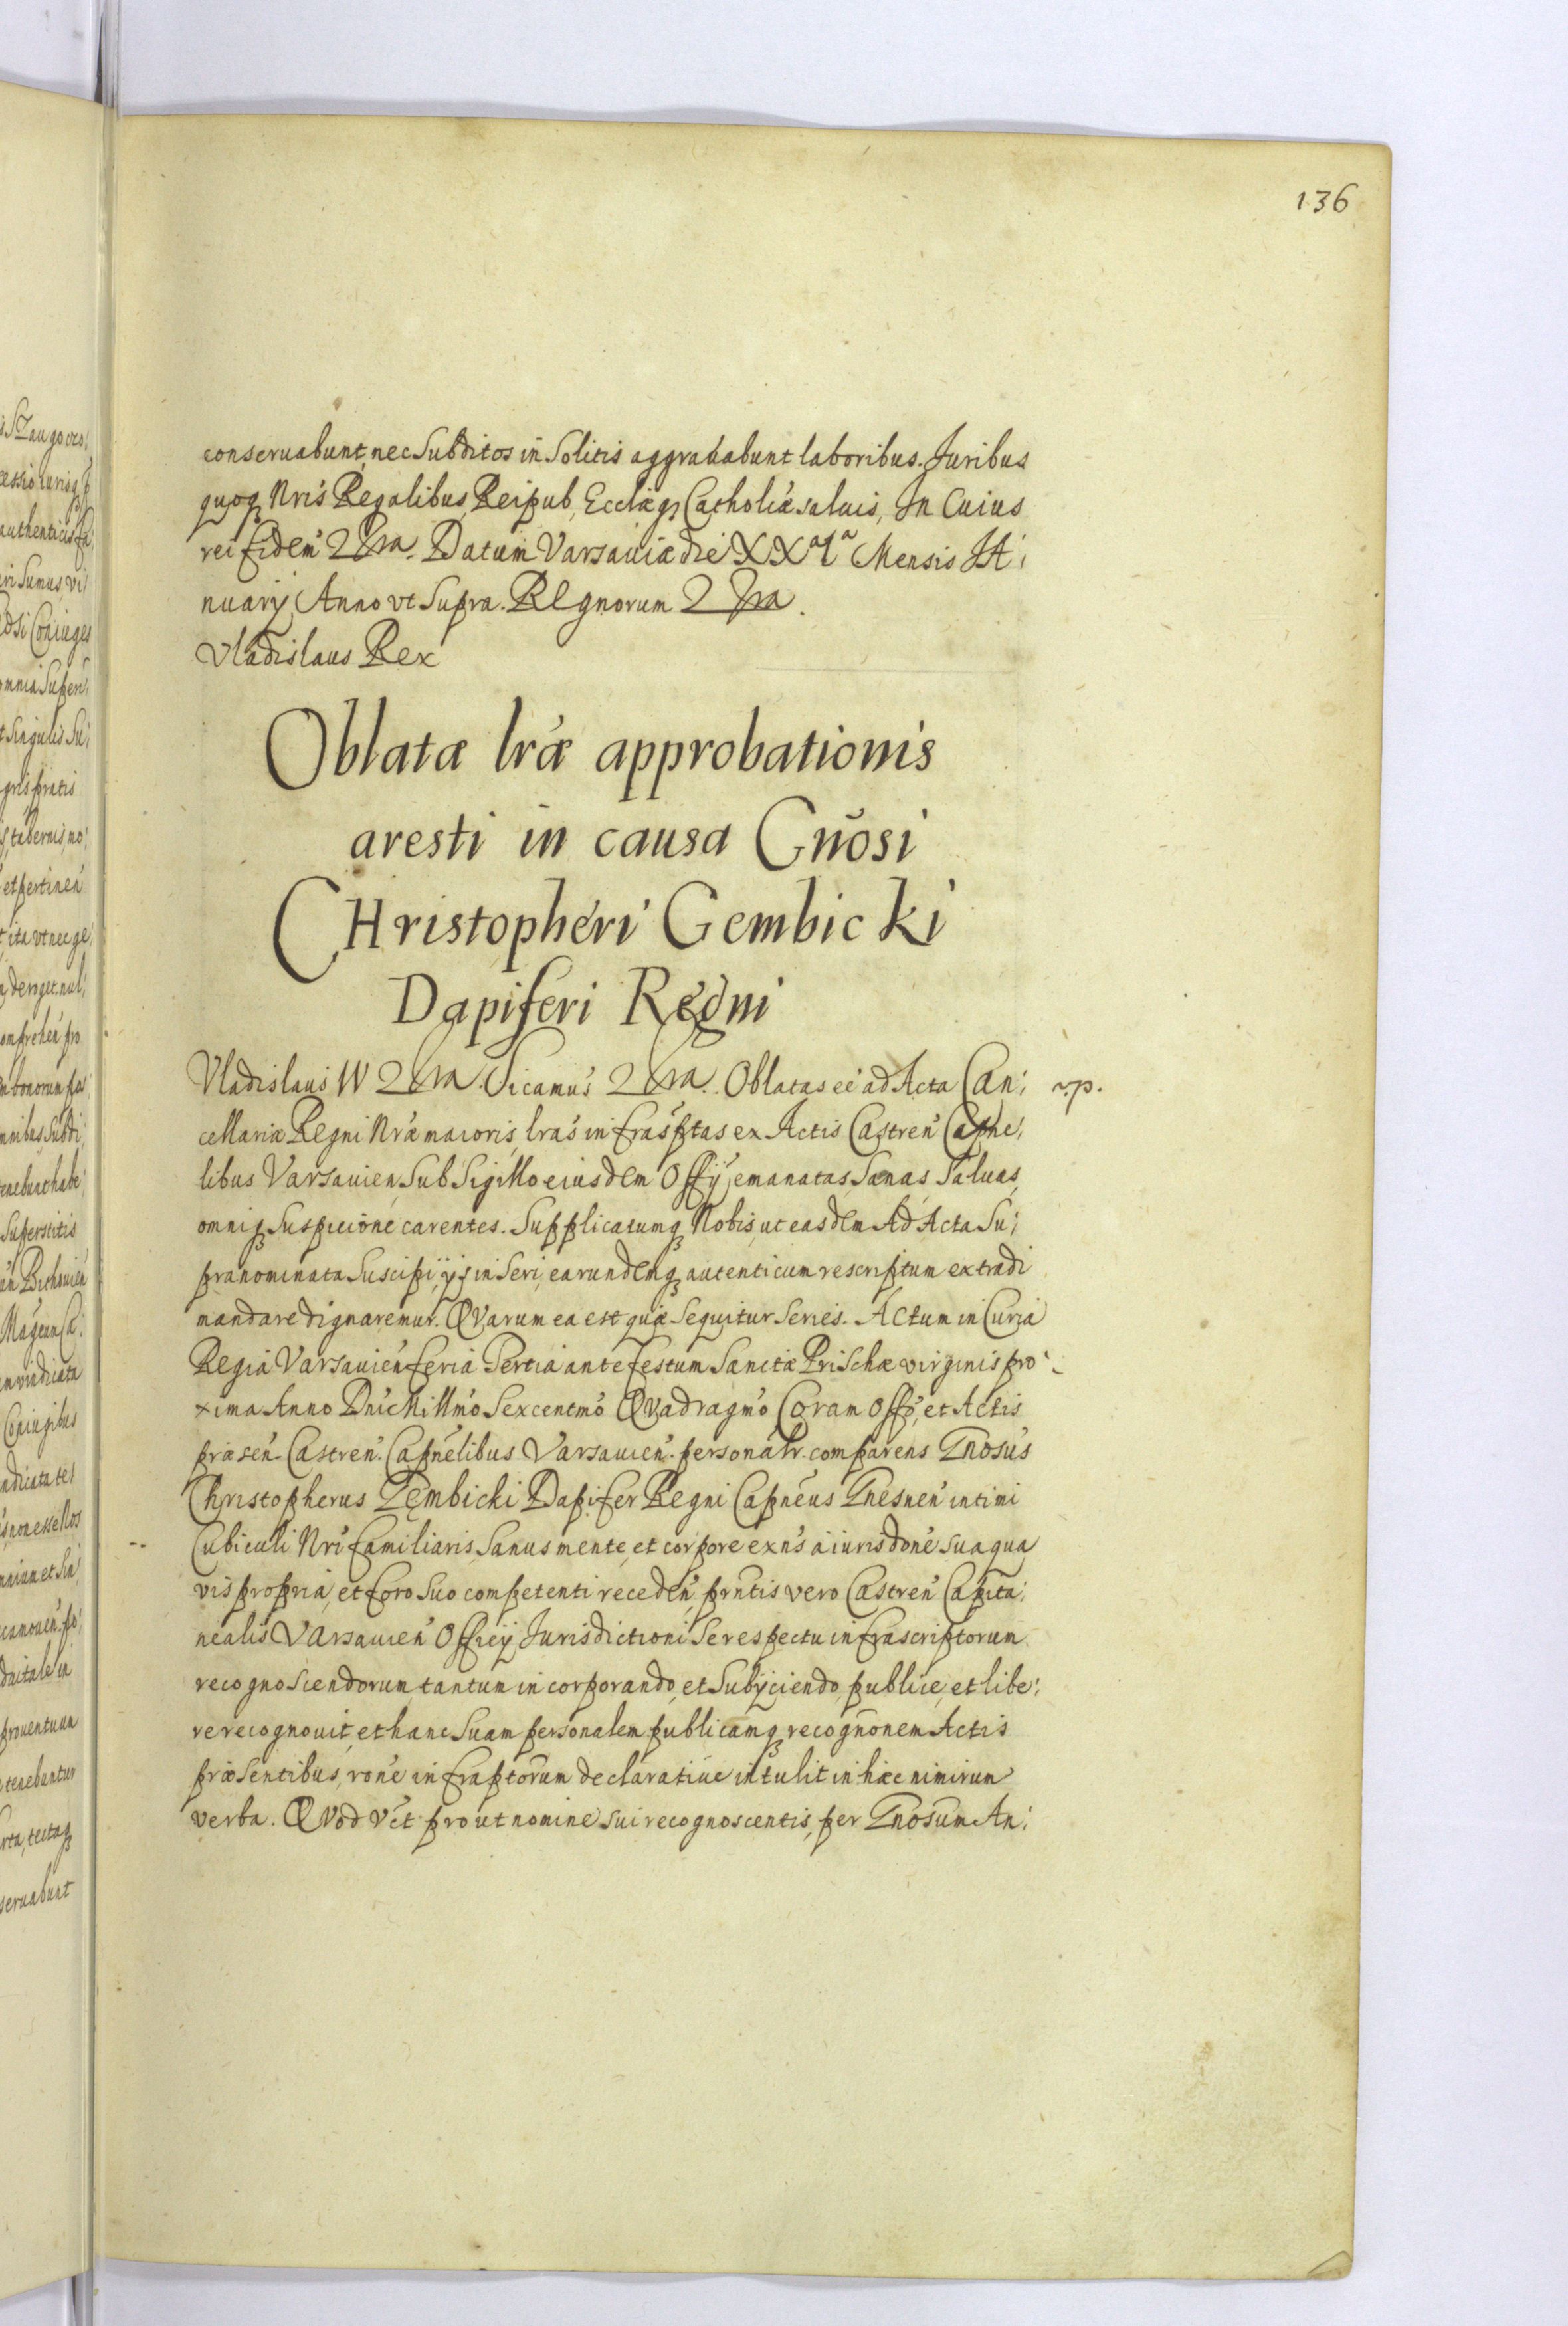 136
conseruabunt, nec Subditos in Solitis aggrauabunt laboribus. Juribus
quoq Nris Regalibus, Reipub, Ecclæq Catholicæ saluis, In Cuius
rei fidem Datum Varsauiæ die XXa Ia Mensis JA:
nuarij Anno vt Supra. Regnorum
Vladislaus Rex
Oblatæ lræ approbationis
aresti in causa Gnosi
CHristopheri Gembicki
Dapiferi Regni
Vladislaus IV Oblatas ee ad Acta Can: np.
cellariæ Regni Nræ maioris, lras infrasptas ex Actis Castren Capne,
libus Varsauien, Sub Sigillo eiusdem Offij, emanatas, Sanas Saluas,
omniq Suspicione carentes. Supplicatumq Nobis, ut easdem Ad Acta Su:
pranominata Suscipi, ijs inseri, earundemq autenticum rescriptum extradi
mandare dignaremur. QVarum ea est quæ sequitur Series. ACtum in Curia
Regia Varsauien feria Tertia ante festum Sanctæ PriSchæ virginis pro
xima Anno Dni Millmo Sexcentmo QVadragmo Coram Offo, et Actis
præsen. Castren. Capnelibus Varsauien. personalr. comparens Gnosus
Christopherus Gembicki Dapifer Regni Capneus Gnesnen intimi
Cubiculi Nri familiaris, Sanus mente, et corpore exns a iurisdone sua qua
vis propria, et foro Suo competenti receden, prntis vero Castren Capita:
nealis VArsauien Officij Jurisdictioni Se respectu infrascriptorum
recognoscendorum tantum incorporando, et Subijciendo, publice, et libe:
re recognouit, et hanc Suam personalem publicamq recognonem Actis
præsentibus, rone infraptorum declaratiue intulit in hæc nimirum
verba. QVod vct prout nomine sui recognoscentis, per Gnosum An: